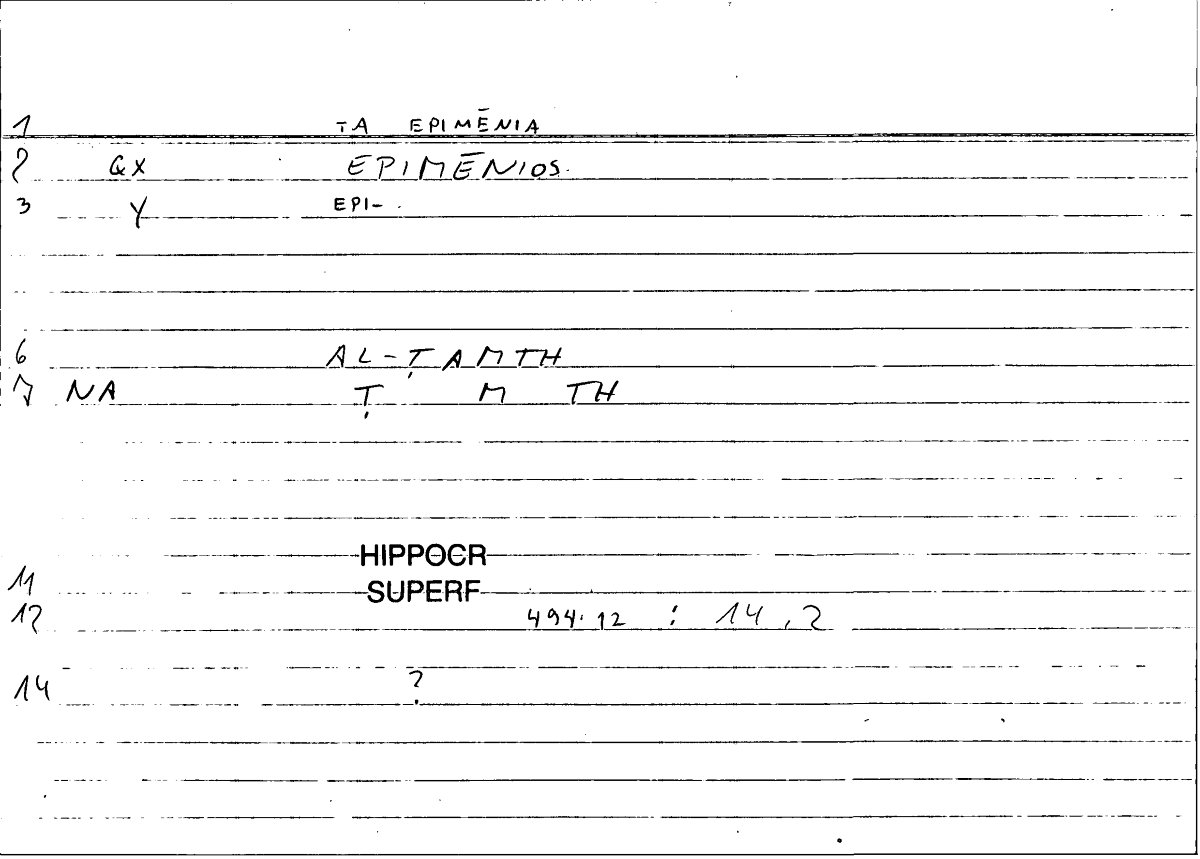 1 TA EPIMĒNIA
2 GX EPIMĒNIOS.
3 Y EPI-
6 AL-ṬAMTH
7 NA Ṭ M TH
HIPPOCR
11 SUPERF
12 494.12 : 14,2
14 ?